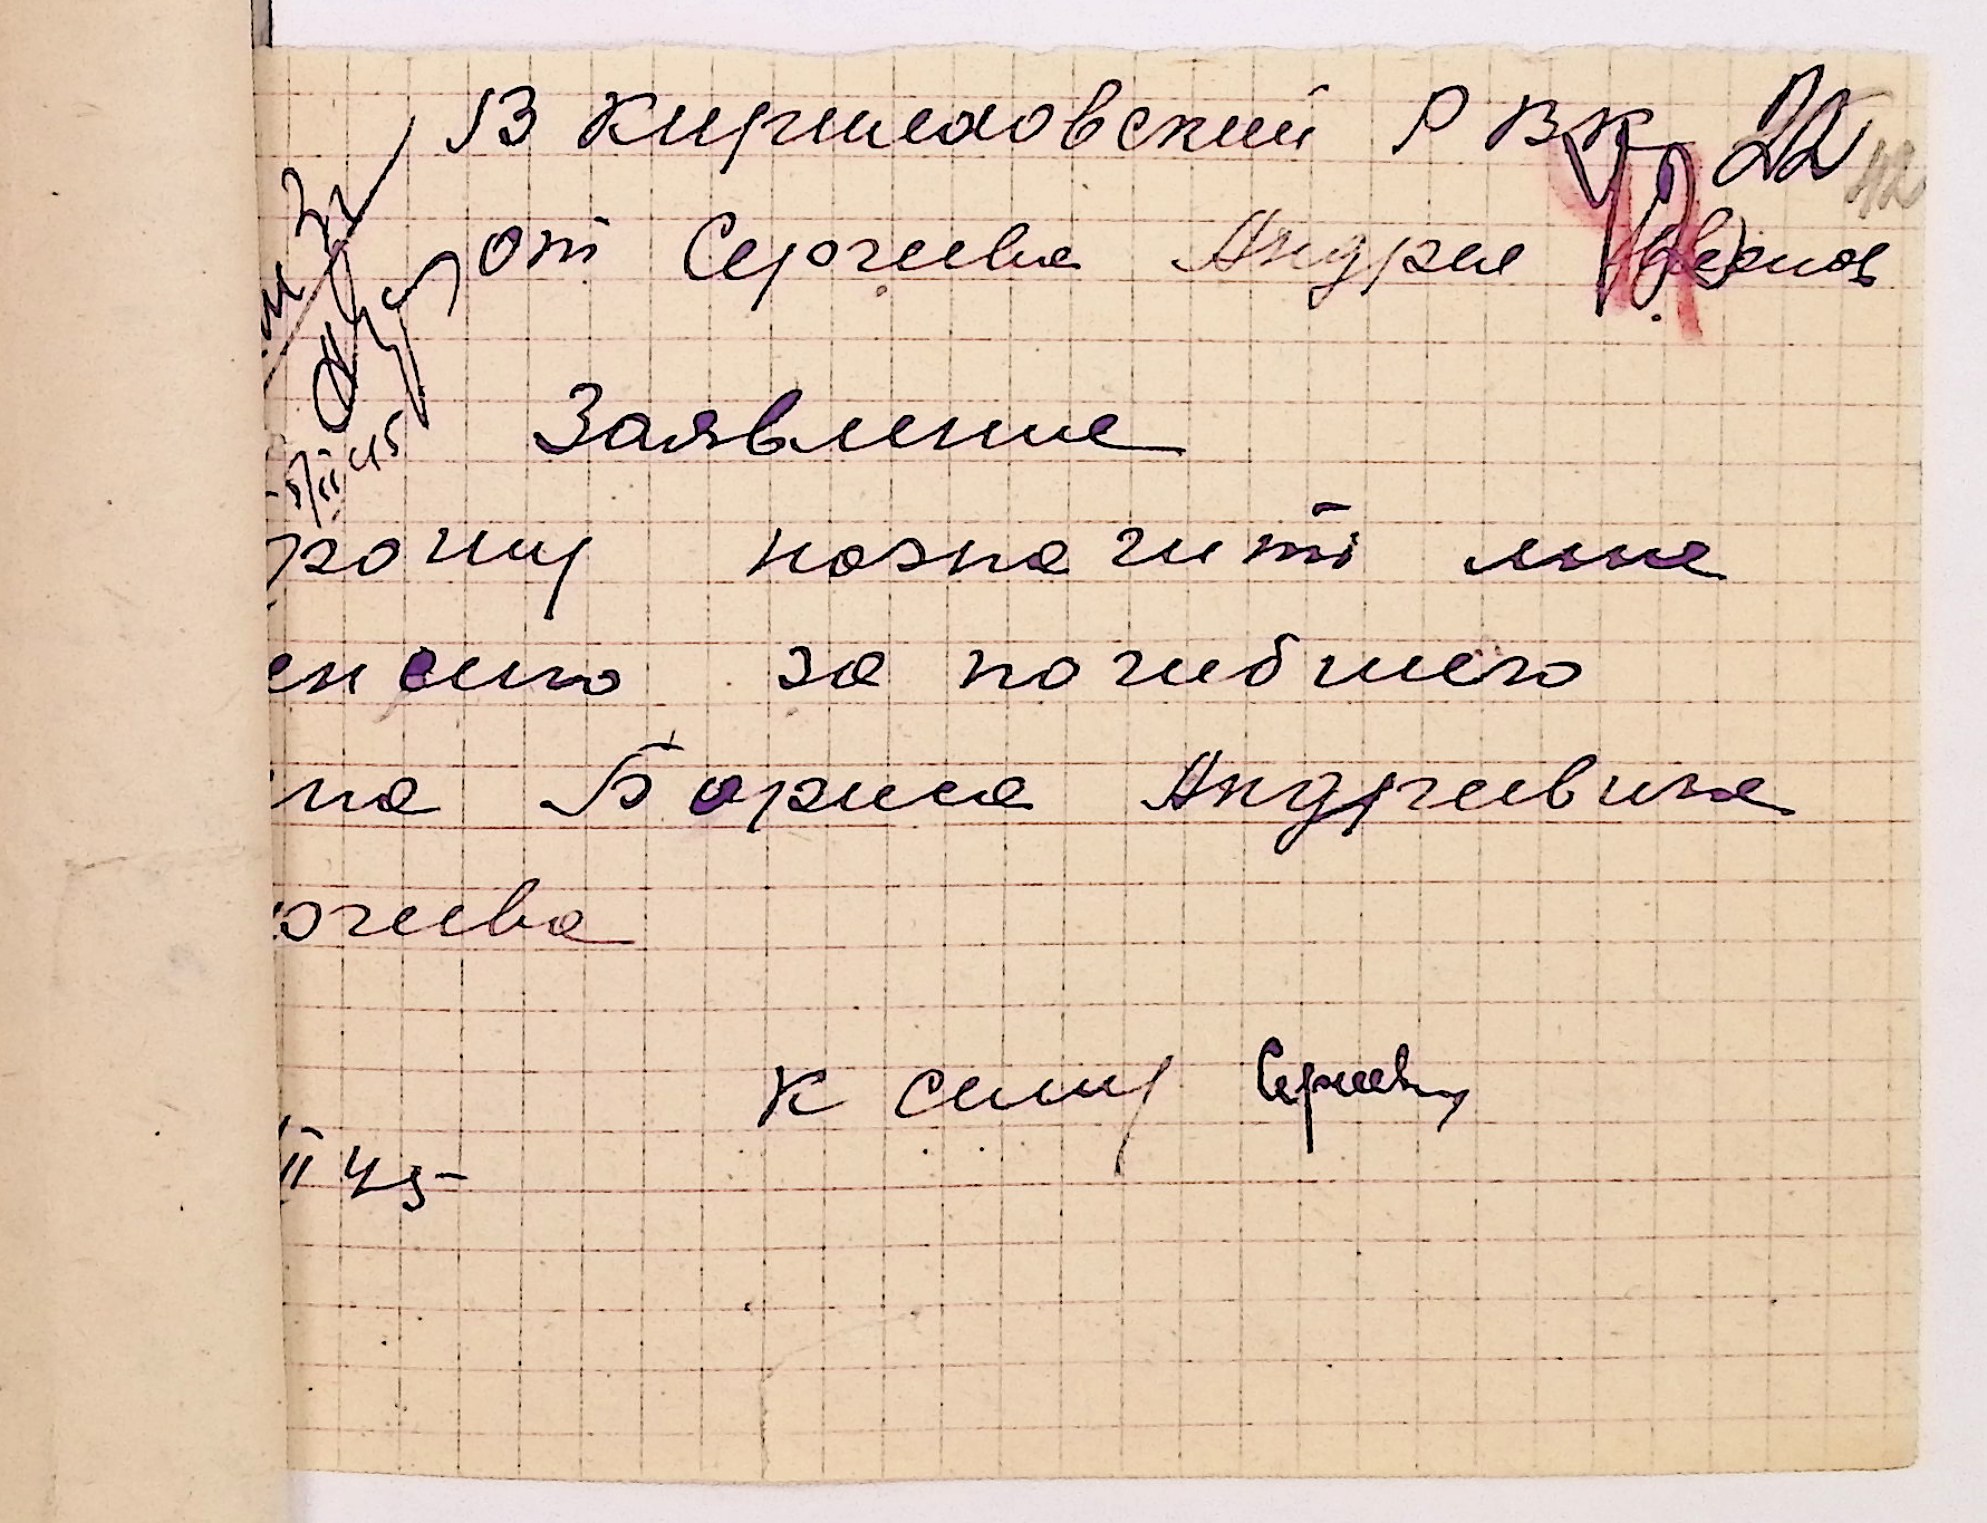 В Кириловский РВК 22
42
от Сергеева Андрея
5/II 45
Заявление
рошу назначить мне
енсию за погибшего
на Бориса Андреевича
ргеева
К сему Сергеев
II 45